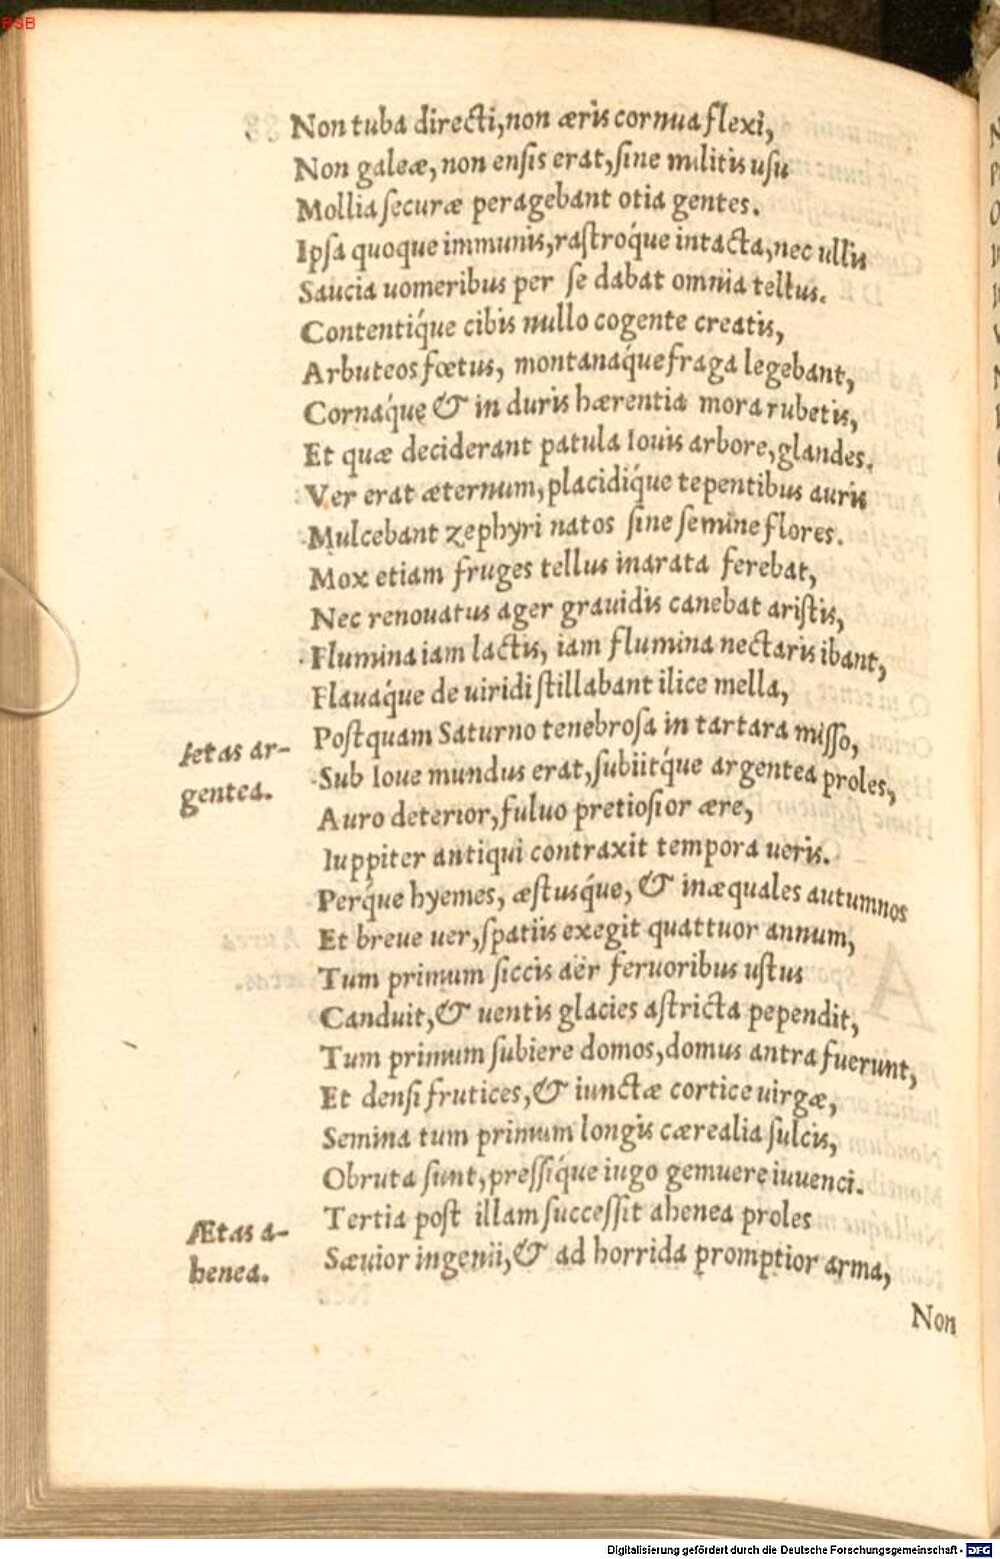 BSB
Non tuba directi, non æris cornua flexi,
Non galeæ, non ensis erat, sine militis usu
Mollia securæ peragebant otia gentes.
Ipsa quoque immunis, rastróque intacta, nec ullis
Saucia uomeribus per se dabat omnia tellus.
Contentíque cibis nullo cogente creatis,
Arbuteos fœtus, montanáque fraga legebant,
Cornáque & in duris hærentia mora rubetis,
Et quæ deciderant patula Iouis arbore, glandes.
Ver erat æternum, placidíque tepentibus auris
Mulcebant zephyri natos sine semine flores.
Mox etiam fruges tellus inarata ferebat,
Nec renouatus ager grauidis canebat aristis,
Flumina iam lactis, iam flumina nectaris ibant,
Flauáque de uiridi stillabant ilice mella,
Aetas ar-
gentea.
Postquam Saturno tenebrosa in tartara misso,
Sub Ioue mundus erat, subiítque argentea proles,
Auro deterior, fuluo pretiosior ære,
Iuppiter antiqui contraxit tempora ueris.
Perque hyemes, æstusque, & inæquales autumnos
Et breue uer, spatiis exegit quattuor annum,
Tum primum siccis aër feruoribus ustus
Canduit, & uentis glacies astricta pependit,
Tum primum subiere domos, domus antra fuerunt,
Et densi frutices, & iunctæ cortice uirgæ,
Semina tum primum longis cærealia sulcis,
Obruta sunt, pressíque iugo gemuere iuuenci.
Ætas a-
henea.
Tertia post illam successit ahenea proles
Sæuior ingenii, & ad horrida promptior arma,
Non
Digitalisierung gefördert durch die Deutsche Forschungsgemeinschaft - DFG